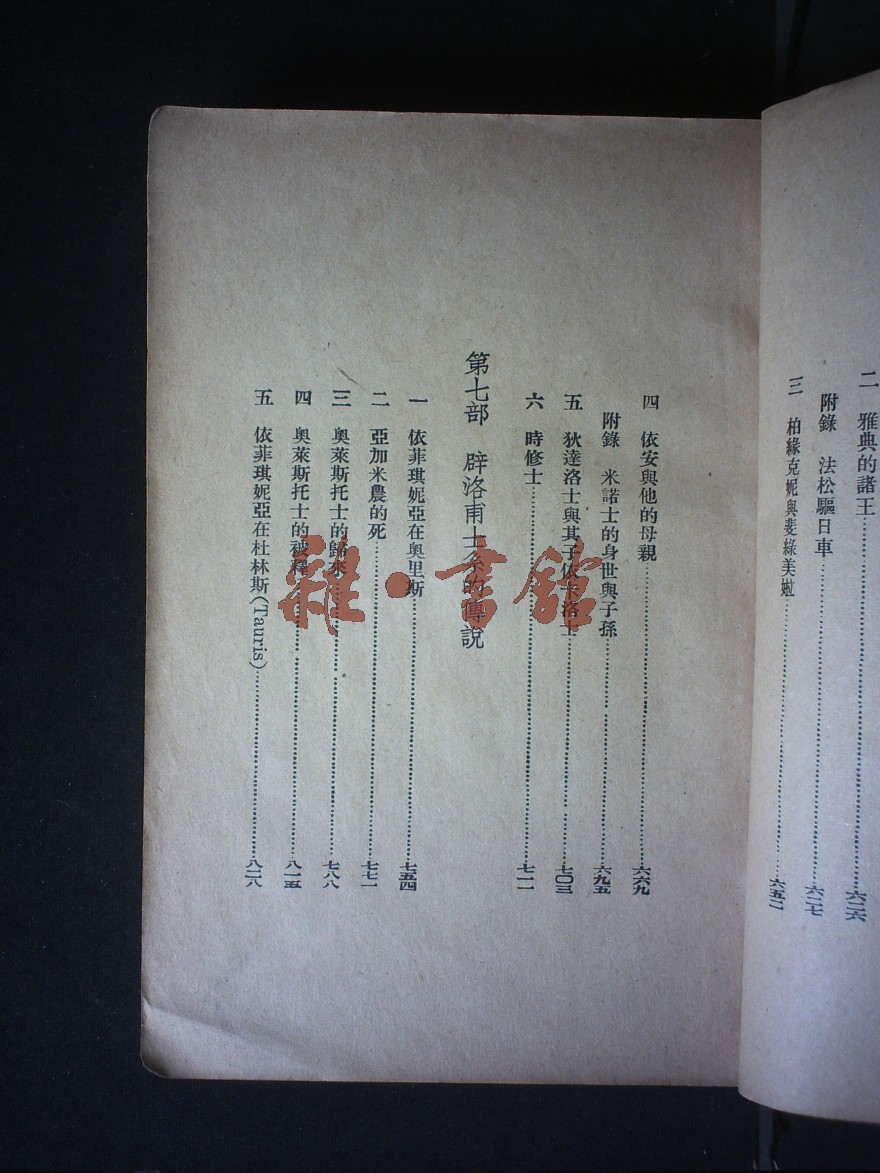 二　雅典的諸王……六二六
附錄　法松驅日車……六二七
三　柏緣克妮與斐綠美㜑……六五二
四　依安與他的母親……六六九
附錄　米諾士的身世與子孫……六九五
五　狄達洛士與其子依卡洛士……七〇三
六　時修士……七一一
第七部　辟洛甫士系的傳說
一　依菲琪妮亞在奧里斯……七五四
二　亞加米農的死……七七一
三　奧萊斯托士的歸來……七八八
四　奧萊斯托士的被釋……八一五
五　依菲琪妮亞在杜林斯(Tauris)……八二八
雜·書館